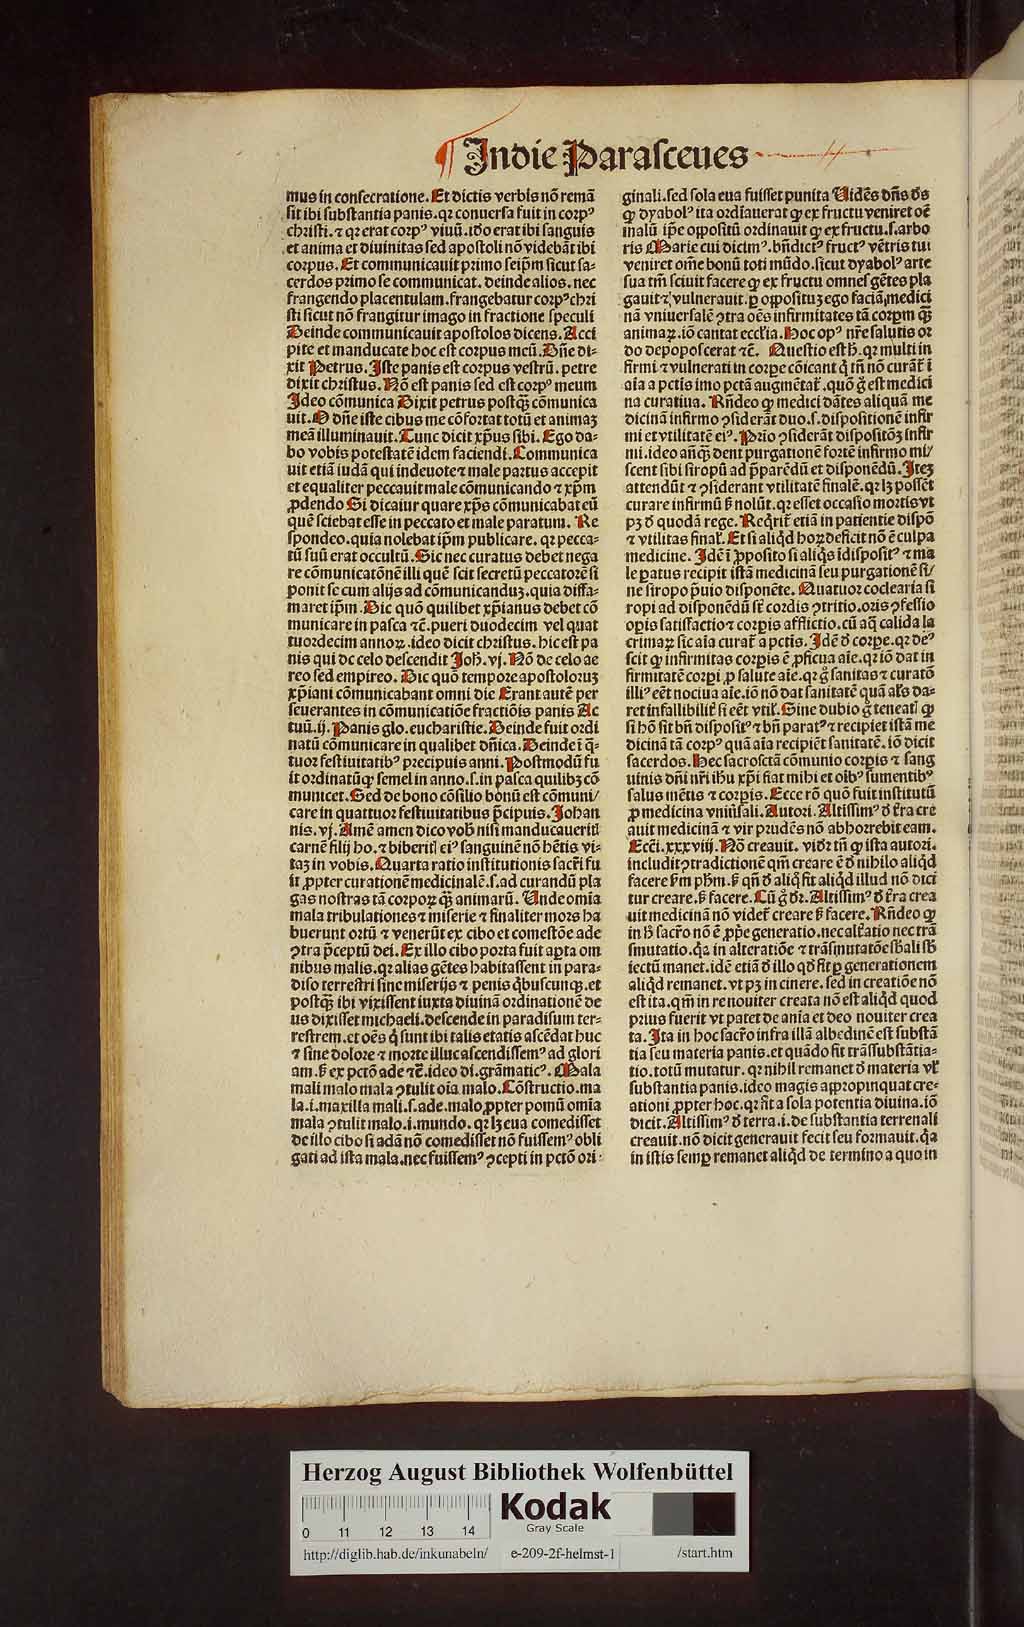 ¶ Indie Parasceues
mus in consecratione. Et dictis verbis nō remā
sit ibi substantia panis. qꝛ conuersa fuit in corpꝰ
christi. ⁊ qꝛ erat corpꝰ viuū. iđo erat ibi sanguis
et anima et diuinitas sed apostoli nō videbāt ibi
corpus. Et communicauit primo seip̄m sicut sa-
cerdos primo se communicat. deinde alios. nec
frangendo placentulam. frangebatur corpꝰ chri
sti sicut nō frangitur imago in fractione speculi
Deinde communicauit apostolos dicens. Acci
pite et manducate hoc est corpus meū. Dn̄e di-
xit Petrus. Iste panis est corpus vestrū. petre
dixit christus. Nō est panis sed est corpꝰ meum
Ideo cōmunica Dixit petrus postq̄ꝫ cōmunica
uit. O dn̄e iste cibus me cōfortat totū et animaꝫ
meā illuminauit. Tunc dicit xp̄us sibi. Ego da-
bo vobis potestatē idem faciendi. Communica
uit etiā iudā qui indeuote ⁊ male partus accepit
et equaliter peccauit male cōmunicando ⁊ xp̄m
ꝓdendo Si dicatur quare xp̄s cōmunicabat eū
quē sciebat esse in peccato et male paratum. Re
spondeo. quia nolebat ip̄m publicare. qꝛ pecca-
tū suū erat occultū. Sic nec curatus debet nega
re cōmunicatōnē illi quē scit secretū peccatorē si
ponit se cum alijs ad cōmunicanduꝫ. quia diffa-
maret ip̄m. Dic quō quilibet xp̄ianus debet cō
municare in pasca ⁊c̄. pueri duodecim vel quat
tuordecim annoꝝ. ideo dicit christus. hic est pa
nis qui de celo descendit Joh̄. vj. Nō de celo ae
reo sed empireo. Dic quō tempore apostoloruꝫ
xp̄iani cōmunicabant omni die Erant autē per
seuerantes in cōmunicatiōe fractiōis panis Ac
tuū. ij. Panis glo. eucharistie. Deinde fuit ordi
natū cōmunicare in qualibet dn̄ica. Deinde ī q̄-
tuor festiuitatibꝰ precipuis anni. Postmodū fu
it ordinatū ꝙ semel in anno. s. in pasca quilibꝫ cō
municet. Sed de bono cōsilio bonū est cōmuni/
care in quattuor festiuitatibus p̄cipuis. Johan
nis. vj. Amē amen dico vob̄ nisi manducaueritꝭ
carnē filij ho. ⁊ biberitꝭ eiꝰ sanguinē nō hētis vi-
taꝫ in vobis. Quarta ratio institutionis sacr̄i fu
it ꝓpter curationē medicinalē. s. ad curandū pla
gas nostras tā corpoꝝ q̄ꝫ animarū. Unde om̄ia
mala tribulationes ⁊ miserie ⁊ finaliter mors ha
buerunt ortū ⁊ venerūt ex cibo et comestōe ade
ↄtra p̄ceptū dei. Ex illo cibo porta fuit apta om
nibus malis. qꝛ alias gētes habitassent in para-
diso terrestri sine miserijs ⁊ penis q̄buscunqꝫ. et
postq̄ꝫ ibi vixissent iuxta diuinā ordinationē de
us dixisset michaeli. descende in paradisum ter-
restrem. et oēs q̄ sunt ibi talis etatis ascēdat huc
⁊ sine dolore ⁊ morte illuc ascendissemꝰ ad glori
am. ß ex pctō ade ⁊c̄. ideo di. grāmaticꝰ. Mala
mali malo mala ↄtulit oīa malo. Cōstructio. ma
la. i. maxilla mali. s. ade. malo, ꝓpter pomū om̄ia
mala ↄtulit malo. i. mundo. qꝛ lꝫ eua comedisset
de illo cibo si adā nō comedisset nō fuissemꝰ obli
gati ad ista mala. nec fuissemꝰ ↄcepti in pctō ori-
ginali. sed sola eua fuisset punita Uidēs dn̄s đs
ꝙ dyabolꝰ ita ordīauerat ꝙ ex fructu veniret oē
malū ip̄e oppositū ordinauit ꝙ ex fructu. s. arbo
ris Marie cui dicimꝰ. bn̄dictꝰ fructꝰ vētris tui
veniret om̄e bonū toti mūdo. sicut dyabolꝰ arte
sua tm̄ sciuit facere ꝙ ex fructu omnes gētes pla
gauit ⁊ vulnerauit. ꝑ oppositūꝫ ego faciā, medici
nā vniuersalē ↄtra oēs infirmitates tā corpm̄ q̄ꝫ
animaꝝ. iō cantat eccl̄ia. Hoc opꝰ nr̄e salutis or
do depoposcerat ⁊c̄. Questio est h̄. qꝛ multi in
firmi ⁊ vulnerati in corpe cōicant q̄ tn̄ nō curāt᷑ ī
aīa a pctis imo pctā augmētat᷑. quō g̊ est medici
na curatiua. Rn̄deo ꝙ medici dātes aliquā me
dicinā infirmo ↄsiderāt duo. s. dispositionē infir
mi et vtilitatē eiꝰ. Prīo ↄsiderāt dispositōꝫ infir
mi. ideo anq̄ꝫ dent purgationē fortē infirmo mi/
scent sibi siropū ad p̄parēdū et disponēdū. Iteꝫ
attendūt ⁊ ↄsiderant vtilitatē finalē. qꝛ lꝫ possēt
curare infirmū ß nolūt. qꝛ esset occasio mortis vt
pꝫ đ quodā rege. Req̄rit᷑ etiā in patientie dispō
⁊ vtilitas final᷑. Et si aliq̄d hoꝝ deficit nō ē culpa
medicine. Idē ī ꝓposito si aliq̄s īdispositꝰ ⁊ ma
le ꝑatus recipit istā medicinā seu purgationē si/
ne siropo p̄uio disponēte. Quatuor coclearia si
ropi ad disponēdū sr̄ cordis ↄtritio. oris ↄfessio
oꝑis satisfactio ⁊ corpis afflictio. cū aq̄ calida la
crimaꝝ sic aīa curat᷑ a pctis. Idē đ corpe. qꝛ deꝰ
scit ꝙ infirmitas corpis ē ꝓficua aīe. qꝛ iō dat in
firmitatē corpi ꝓ salute aīe. qꝛ g̊ sanitas ⁊ curatō
illiꝰ eēt nociua aīe. iō nō dat sanitatē quā al̄s da-
ret infallibilit᷑ si eēt vtil᷑. Sine dubio g̊ teneatꝭ ꝙ
si hō sit bn̄ dispositꝰ ⁊ bn̄ paratꝰ ⁊ recipiet istā me
dicinā tā corpꝰ quā aīa recipiēt sanitatē. iō dicit
sacerdos. Hec sacrosctā cōmunio corpis ⁊ sang
uinis dn̄i nr̄i ih̄u xp̄i fiat mihi et oībꝰ sumentibꝰ
salus mētis ⁊ corpis. Ecce rō quō fuit institutū
ꝓ medicina vniūsali. Autori. Altissimꝰ đ t̄ra cre
auit medicinā ⁊ vir prudēs nō abhorrebit eam.
Ecc̄i. xxxviij. Nō creauit. vidꝛ tn̄ ꝙ ista autori.
includit ↄtradictionē qm̄ creare ē đ nihilo aliq̄d
facere ßm ph̄m. ß qn̄ đ aliq̄ fit aliq̄d illud nō dici
tur creare. ß facere. Cū g̊ dꝛ. Altissimꝰ đ t̄ra crea
uit medicinā nō videt᷑ creare ß facere. Rn̄deo ꝙ
in h̄ sacr̄o nō ē ꝓpe generatio. nec alt̄atio nec trā
smutatio. q̄a in alteratiōe ⁊ trāsmutatōe sb̄ali sb̄
iectū manet. idē etiā đ illo qđ fit ꝑ generationem
aliq̄d remanet. vt pꝫ in cinere. sed in creatiōe nō
est ita. qm̄ in re nouiter creata nō est aliq̄d quod
prius fuerit vt patet de anīa et deo nouiter crea
ta. Ita in hoc sacr̄o infra illā albedinē est substā
tia seu materia panis. et quādo fit trāssubstātia-
tio. totū mutatur. qꝛ nihil remanet đ materia vl᷑
substantia panis. ideo magis appropinquat cre-
ationi ꝓpter hoc. qꝛ fit a sola potentia diuina. iō
dicit. Altissimꝰ đ terra. i. de substantia terrenali
creauit. nō dicit generauit fecit seu formauit. q̄a
in istis semꝑ remanet aliq̄d de termino a quo in
Herzog August Bibliothek Wolfenbüttel
0 11 12 13 14
Kodak
Gray Scale
http://diglib.hab.de/inkunabeln/ e-209-2f-helmst-1 /start.htm